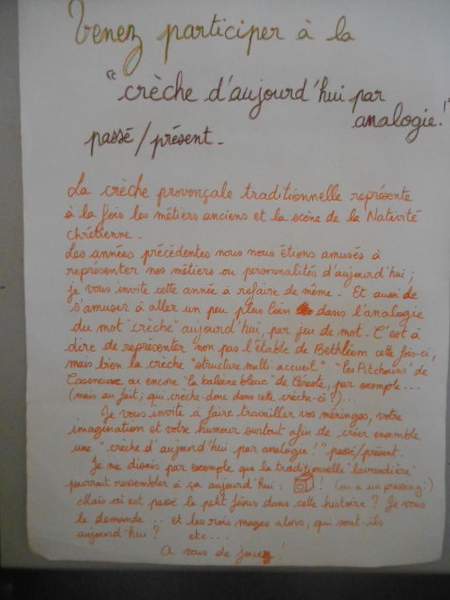 Venez participer à la
"crèche d'aujourd'hui par
analogie!"
passé/présent.
La crèche provençale traditionnelle représente
à la fois les métiers anciens et la scène de la Nativité
chrétienne.
Les années précédentes nous nous étions amusés à
représenter nos métiers ou personnalités d'aujourd'hui ;
je vous invite cette année à refaire de même. Et aussi de
s'amuser à aller un peu plus loin dans l'analogie
du mot "crèche" aujourd'hui, par jeu de mot. C'est à
dire de représenter non pas l'étable de Bethléem cette fois-ci,
mais bien la crèche "structure multi-accueil" "les Pitchouns" de
ou encore "la baleine blanc" de par exemple...
(mais au fait, qui crèche donc dans cette crèche-ci?)...
Je vous invite à faire travailler vos méninges, votre
imagination et votre humour surtout afin de créer ensemble
une "crèche d'aujourd'hui par analogie!" passé/présent.
Je me disais par exemple que la traditionnelle "lavandière"
pourrait ressembler à ça aujourd'hui : ! (on a un pressing!)
Mais où est passé le petit Jésus dans cette histoire? Je vous
le demande .. et les rois mages alors, qui sont-ils
aujourd'hui? etc...
A vous de jouer!